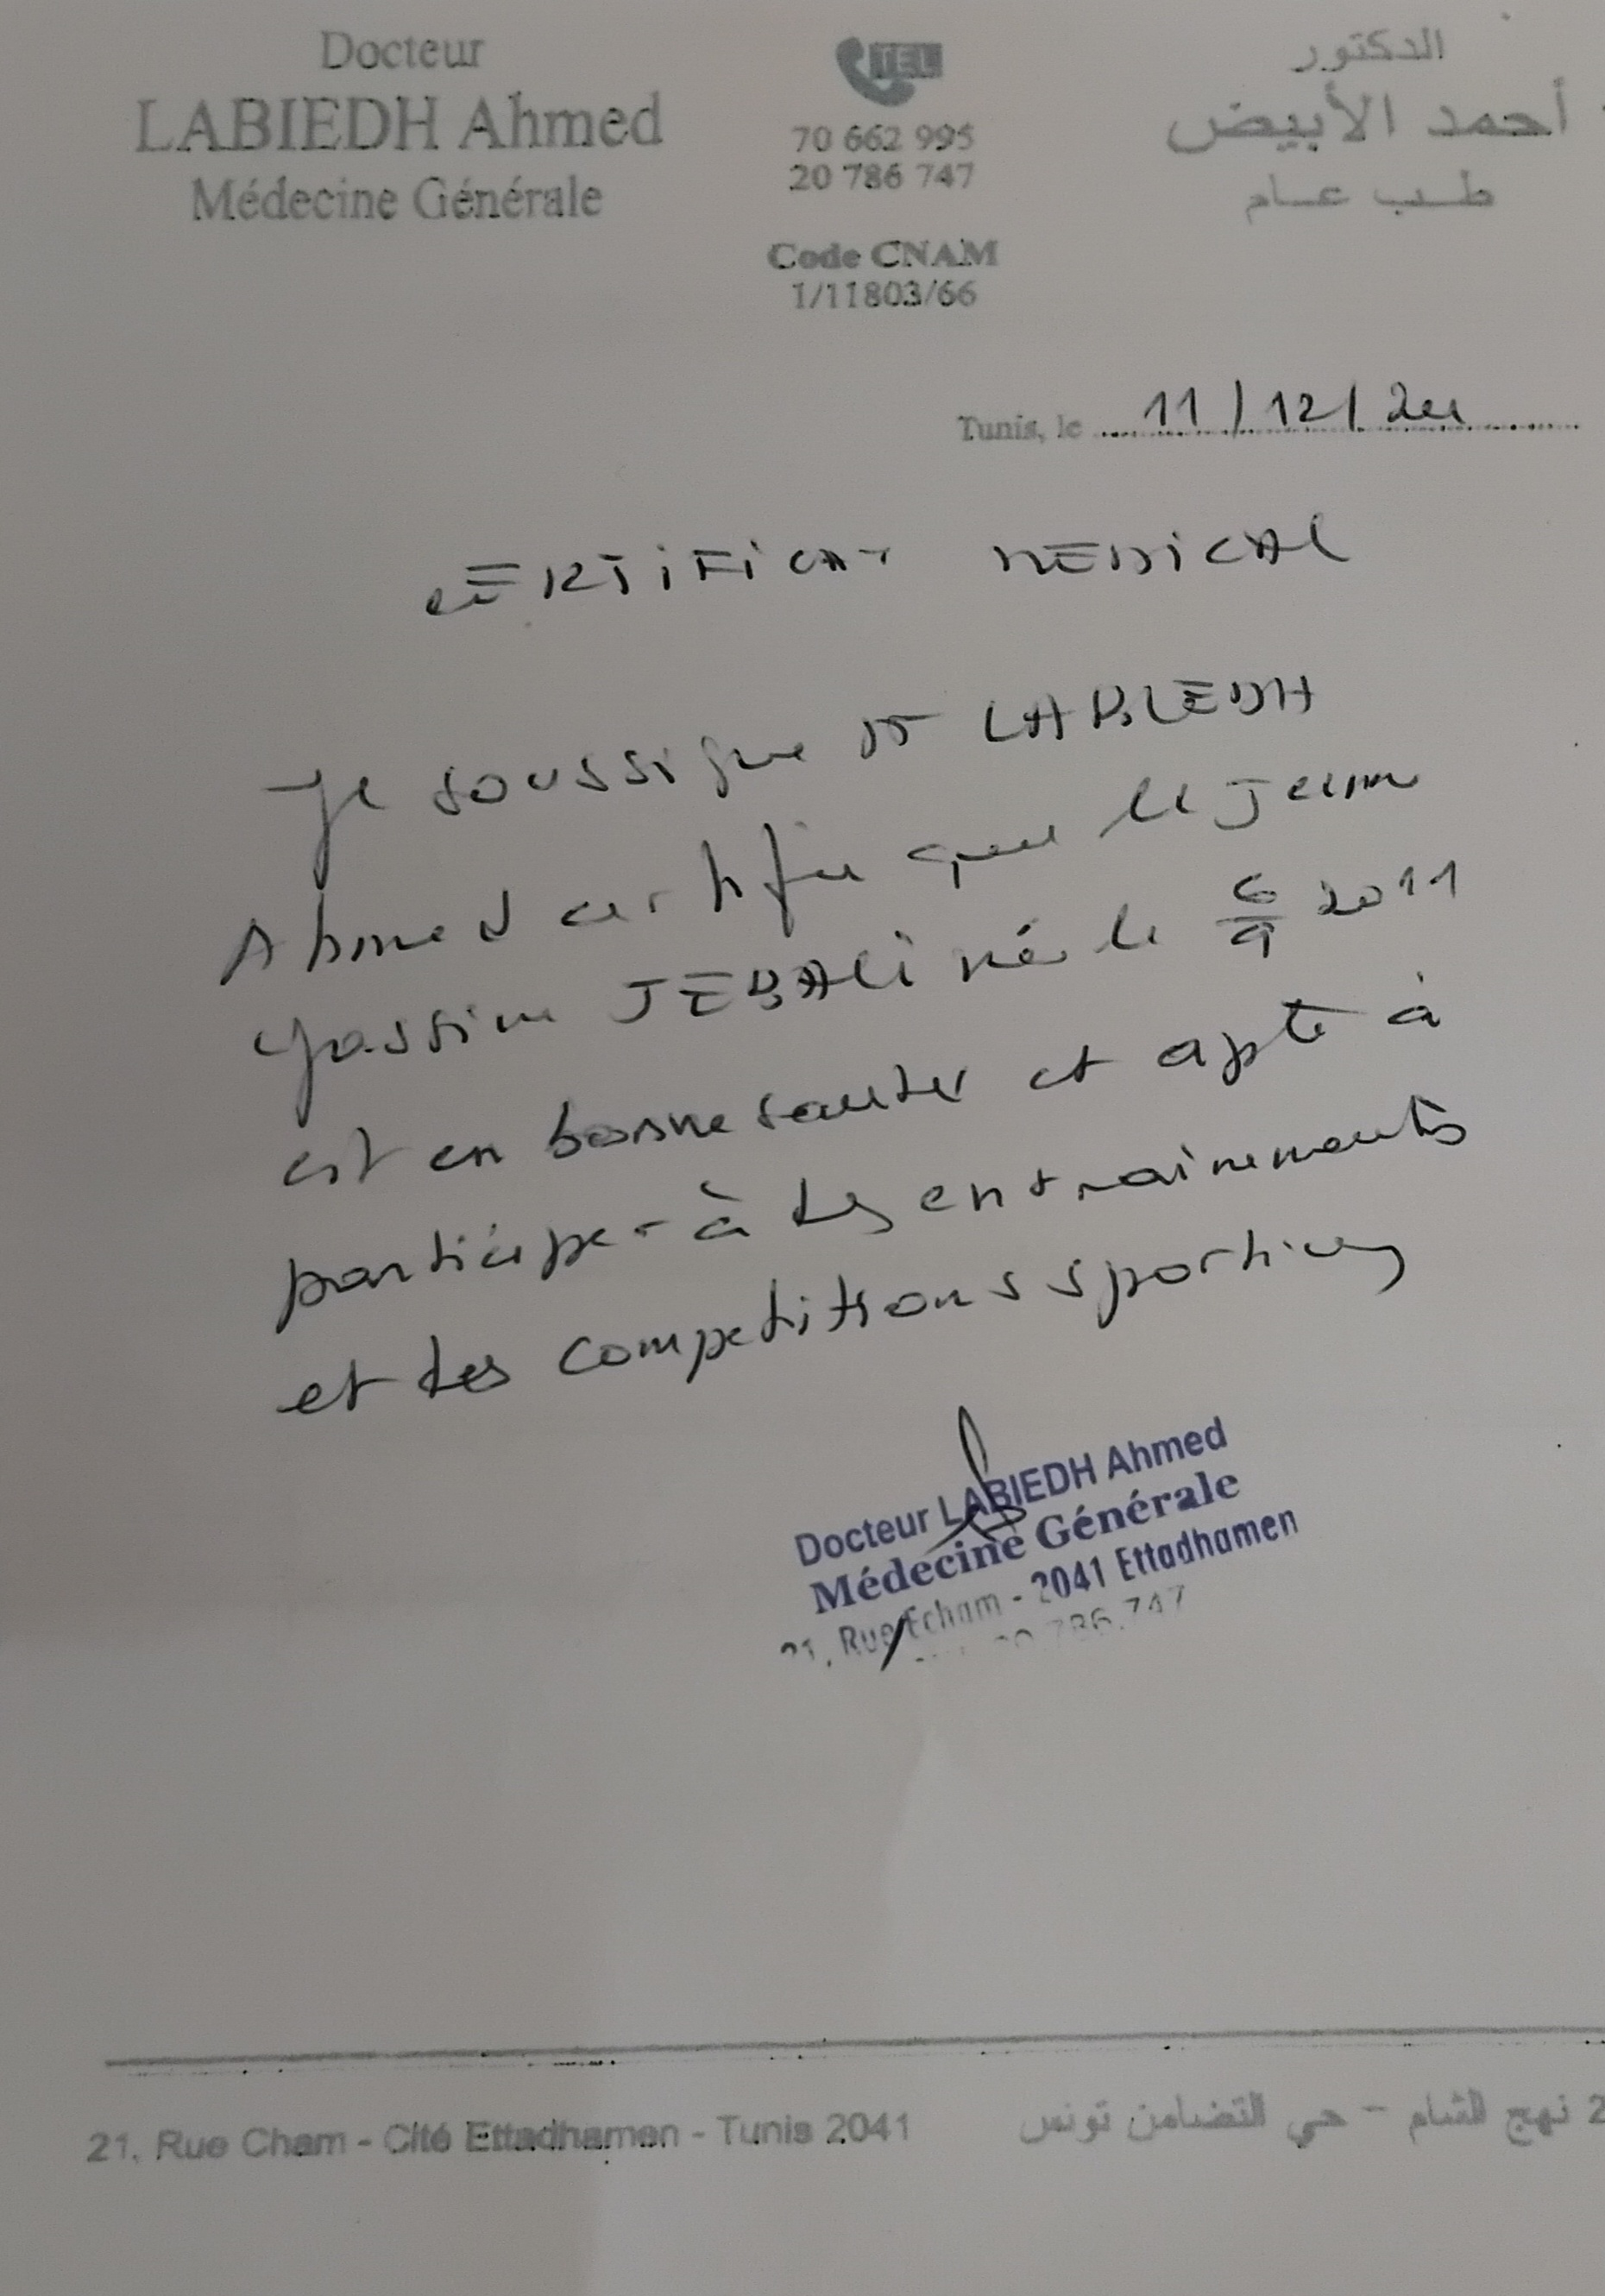 Docteur
LABIEDH Ahmed
Médecine Générale
TEL
70 662 995
20 786 747
Code CNAM
1/11803/66
الدكتور
أحمد الأبيض
طب عام
Tunis, le 11/12/24
CERTIFICAT MEDICAL
Je soussigné Dr LABIEDH
Ahmed certifie que le Jeune
Yassine JEBALI né le 6/9 2011
est en bonne santer et apte à
participer à des entrainements
et des competitions sportives
Docteur LABIEDH Ahmed
Médecine Générale
21, Rue Echam - 2041 Ettadhamen
20.786.747
21, Rue Cham - Cité Ettadhamen - Tunis 2041
2 نهج الشام - حي التضامن تونس